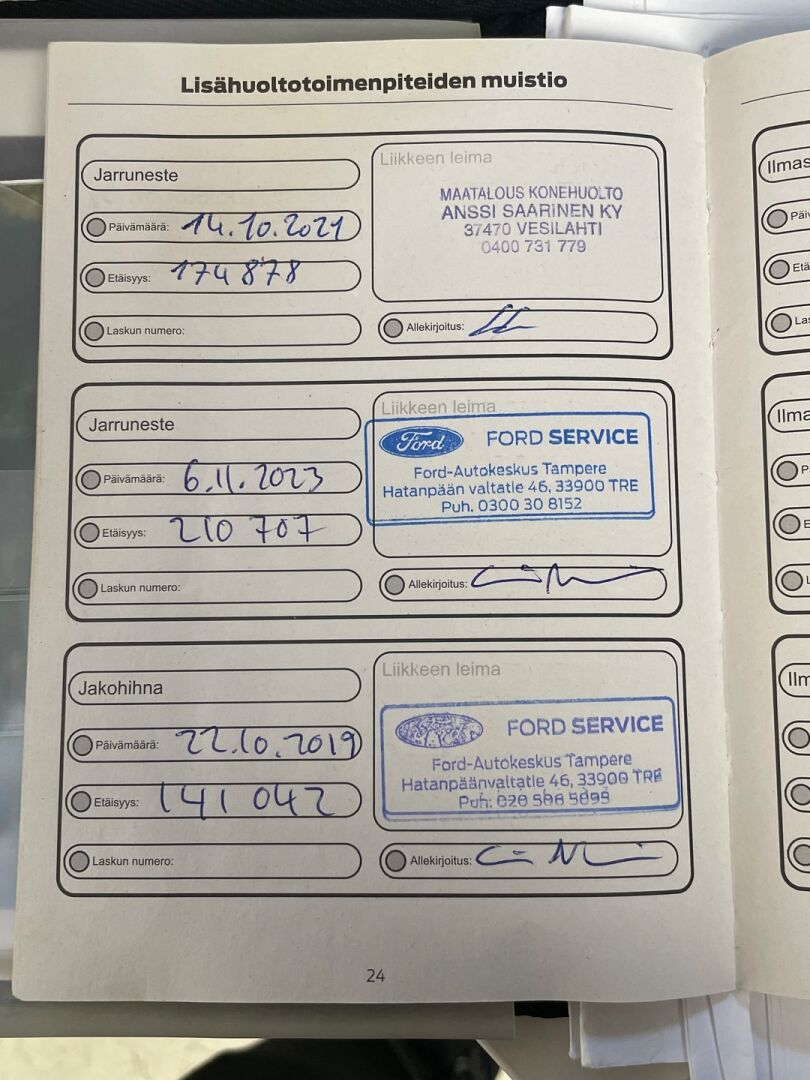 Lisähuoltotoimenpiteiden muistio
Jarruneste
Päivämäärä: 14.10.2021
Etäisyys: 174 878
Laskun numero:
Liikkeen leima
MAATALOUS KONEHUOLTO
ANSSI SAARINEN KY
37470 VESILAHTI
0400 731 779
Allekirjoitus:
Jarruneste
Päivämäärä: 6.11.2023
Etäisyys: 210 707
Laskun numero:
Liikkeen leima
Ford FORD SERVICE
Ford-Autokeskus Tampere
Hatanpään valtatie 46, 33900 TRE
Puh. 0300 30 8152
Allekirjoitus:
Jakohihna
Päivämäärä: 22.10.2019
Etäisyys: 141 042
Laskun numero:
Liikkeen leima
FORD SERVICE
Ford-Autokeskus Tampere
Hatanpäänvaltatie 46, 33900 TRE
Puh: 020 506 5095
Allekirjoitus:
24
Ilmas
Päiv
Etä
Las
Ilma
P
E
L
Ilm